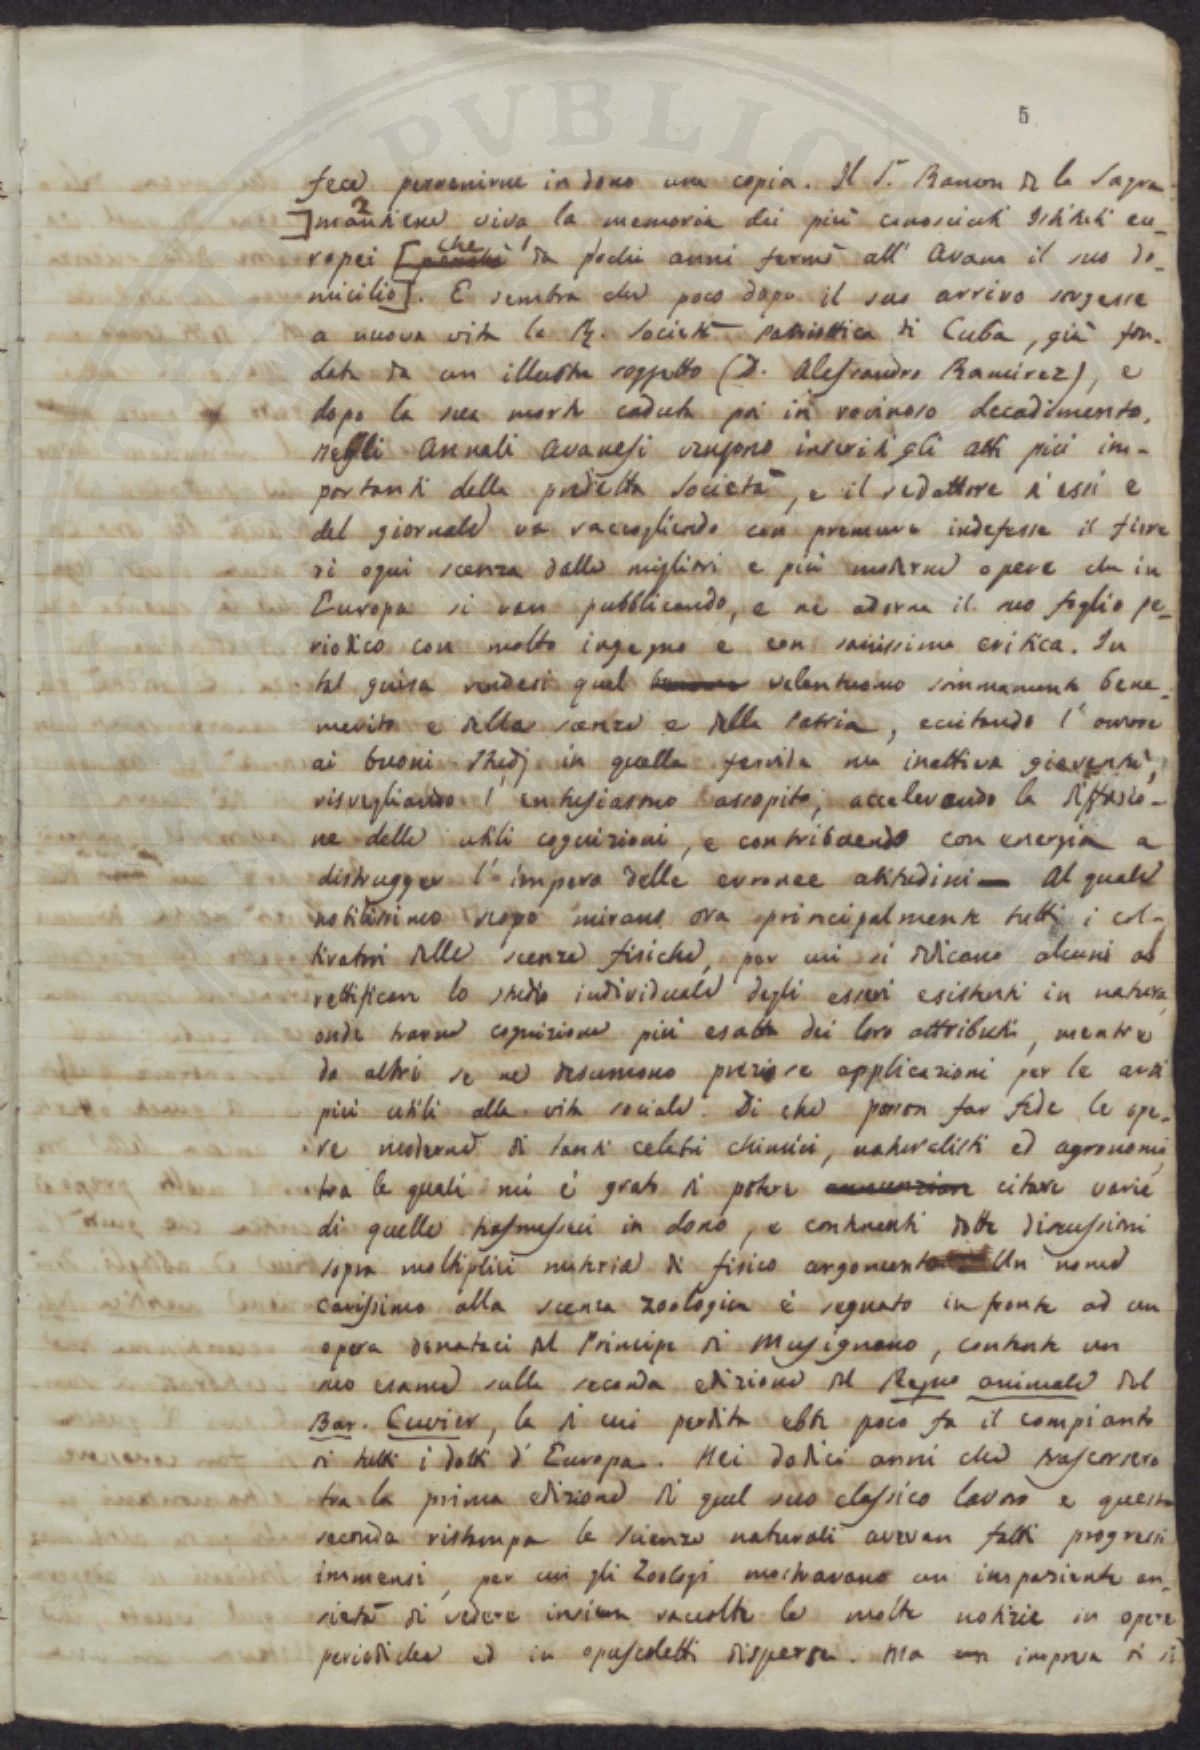 5
fece pervenirne in dono una copia. Il S.r Ramon de la Sagra
]mantiene 2 viva la memoria dei più conosciuti Istituti eu-
ropei [perchè che 1 da pochi anni fermò all' Avana il suo do-
micilio]. E sembra che poco dopo il suo arrivo sorgesse
a nuova vita la R. Società Patriottica di Cuba, già fon-
data da un illustre soggetto (D. Alessandro Ramirez), e
dopo la sua morte caduta poi in rovinoso decadimento.
Negli Annali Avanesi vengono inseriti gli atti più im-
portanti della predetta Società, e il redattore d'essi e
del giornale va raccogliendo con premura indefessa il fiore
di ogni scienza dalle migliori e più moderne opere che in
Europa si van pubblicando, e ne adorna il suo foglio pe-
riodico con molto ingegno e con sanissima critica. In
tal guisa rendesi quel valentuomo sommamente bene-
merito e della scienze e della Patria, eccitando l'amore
ai buoni studj in quella fervida ma inattiva gioventù,
risvegliando l'entusiasmo assopito, accelerando la diffusio-
ne delle utili cognizioni, e contribuendo con energia a
distrugger l'impero delle erronee abitudini — Al quale
nobilissimo scopo mirano ora principalmente tutti i col-
tivatori delle scienze fisiche, per cui si dedicano alcuni a
rettificare lo studio individuale degli esseri esistenti in natura,
onde trarne cognizione più esatta dei loro attributi, mentre
da altri se ne desumono preziose applicazioni per le arti
più utili alla vita sociale. Di che posson far fede le ope-
re moderne di tanti celebri chimici, naturalisti ed agronomi,
tra le quali mi è grato di potere annunziare citare varie
di quelle trasmesseci in dono, e contenenti dotte discussioni
sopra moltiplici materie di fisico argomento. Un nome
carissimo alla scienza zoologica è segnato in fronte ad un
opera donataci dal Principe di Musignano, contente un
suo esame sulla seconda edizione del Regno animale del
Bar. Cuvier, la di cui perdita ebbe poco fa il compianto
di tutti i dotti d'Europa. Nei dodici anni che trascorsero
tra la prima edizione di quel suo classico lavoro e questa
seconda ristampa le scienze naturali avevan fatti progressi
immensi, per cui gli Zoologi mostravano un impaziente an-
sietà di vedere insiem raccolte le molte notizie in opere
periodiche ed in opuscoletti disperse. Ma un impresa di sì